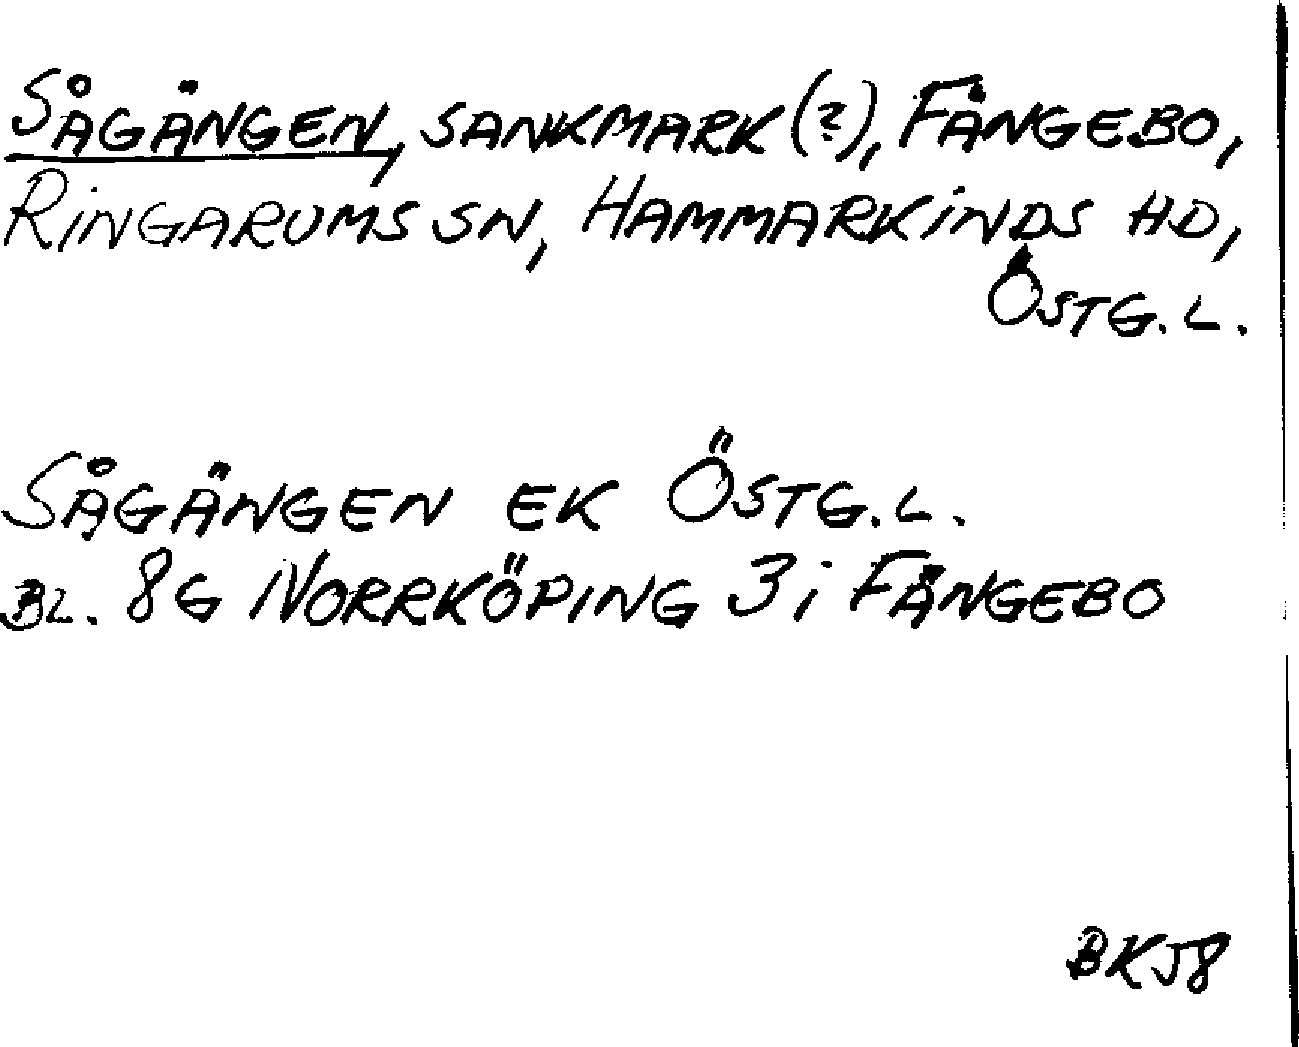 SÅGÄNGEN, SANKMARK(?), FÅNGEBO,
RINGARUMS SN, HAMMARKINDS HD,
ÖSTG. L.
SÅGÄNGEN EK ÖSTG. L.
BL. 8G NORRKÖPING 3i FÅNGEBO
BKJ8